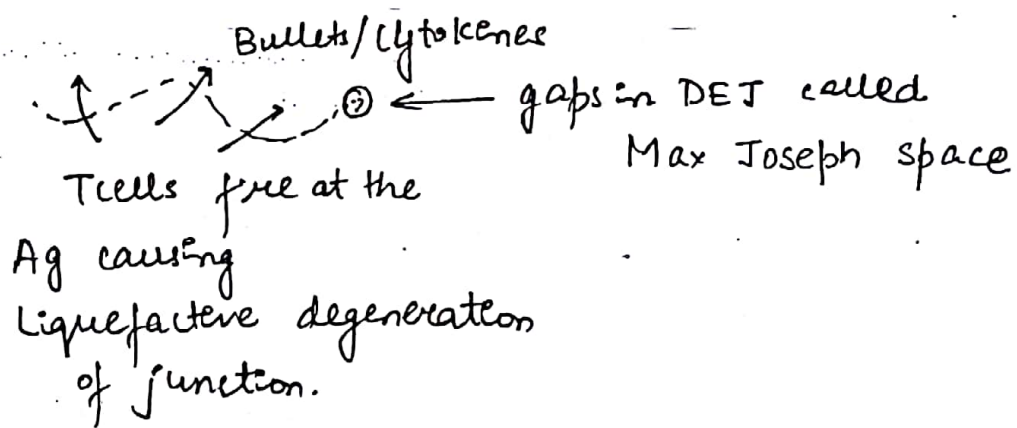 Bullets/Cytokenes
gaps in DEJ called
Max Joseph space
Tcells fire at the
Ag causing
Liquefactive degeneration
of junction.